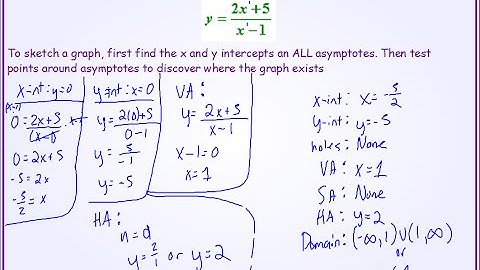 y = (2x'+5)/(x'-1)
To sketch a graph, first find the x and y intercepts an ALL asymptotes. Then test
points around asymptotes to discover where the graph exists
x-int: y=0
(x-1)
0 = (2x+5)/(x-1) ·
0 = 2x+5
-5 = 2x
-5/2 = x
y-int: x=0
y = (2(0)+5)/(0-1)
y = 5/-1
y = -5
VA:
y = (2x+5)/(x-1)
x-1=0
x=1
HA:
n=d
y = 2/1 or y=2
x-int: x=-5/2
y-int: y=-5
holes: None
VA: x=1
SA: None
HA: y=2
Domain: (-∞,1)∪(1,∞)
or